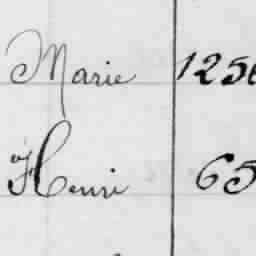 Marie 1256
Henri 65